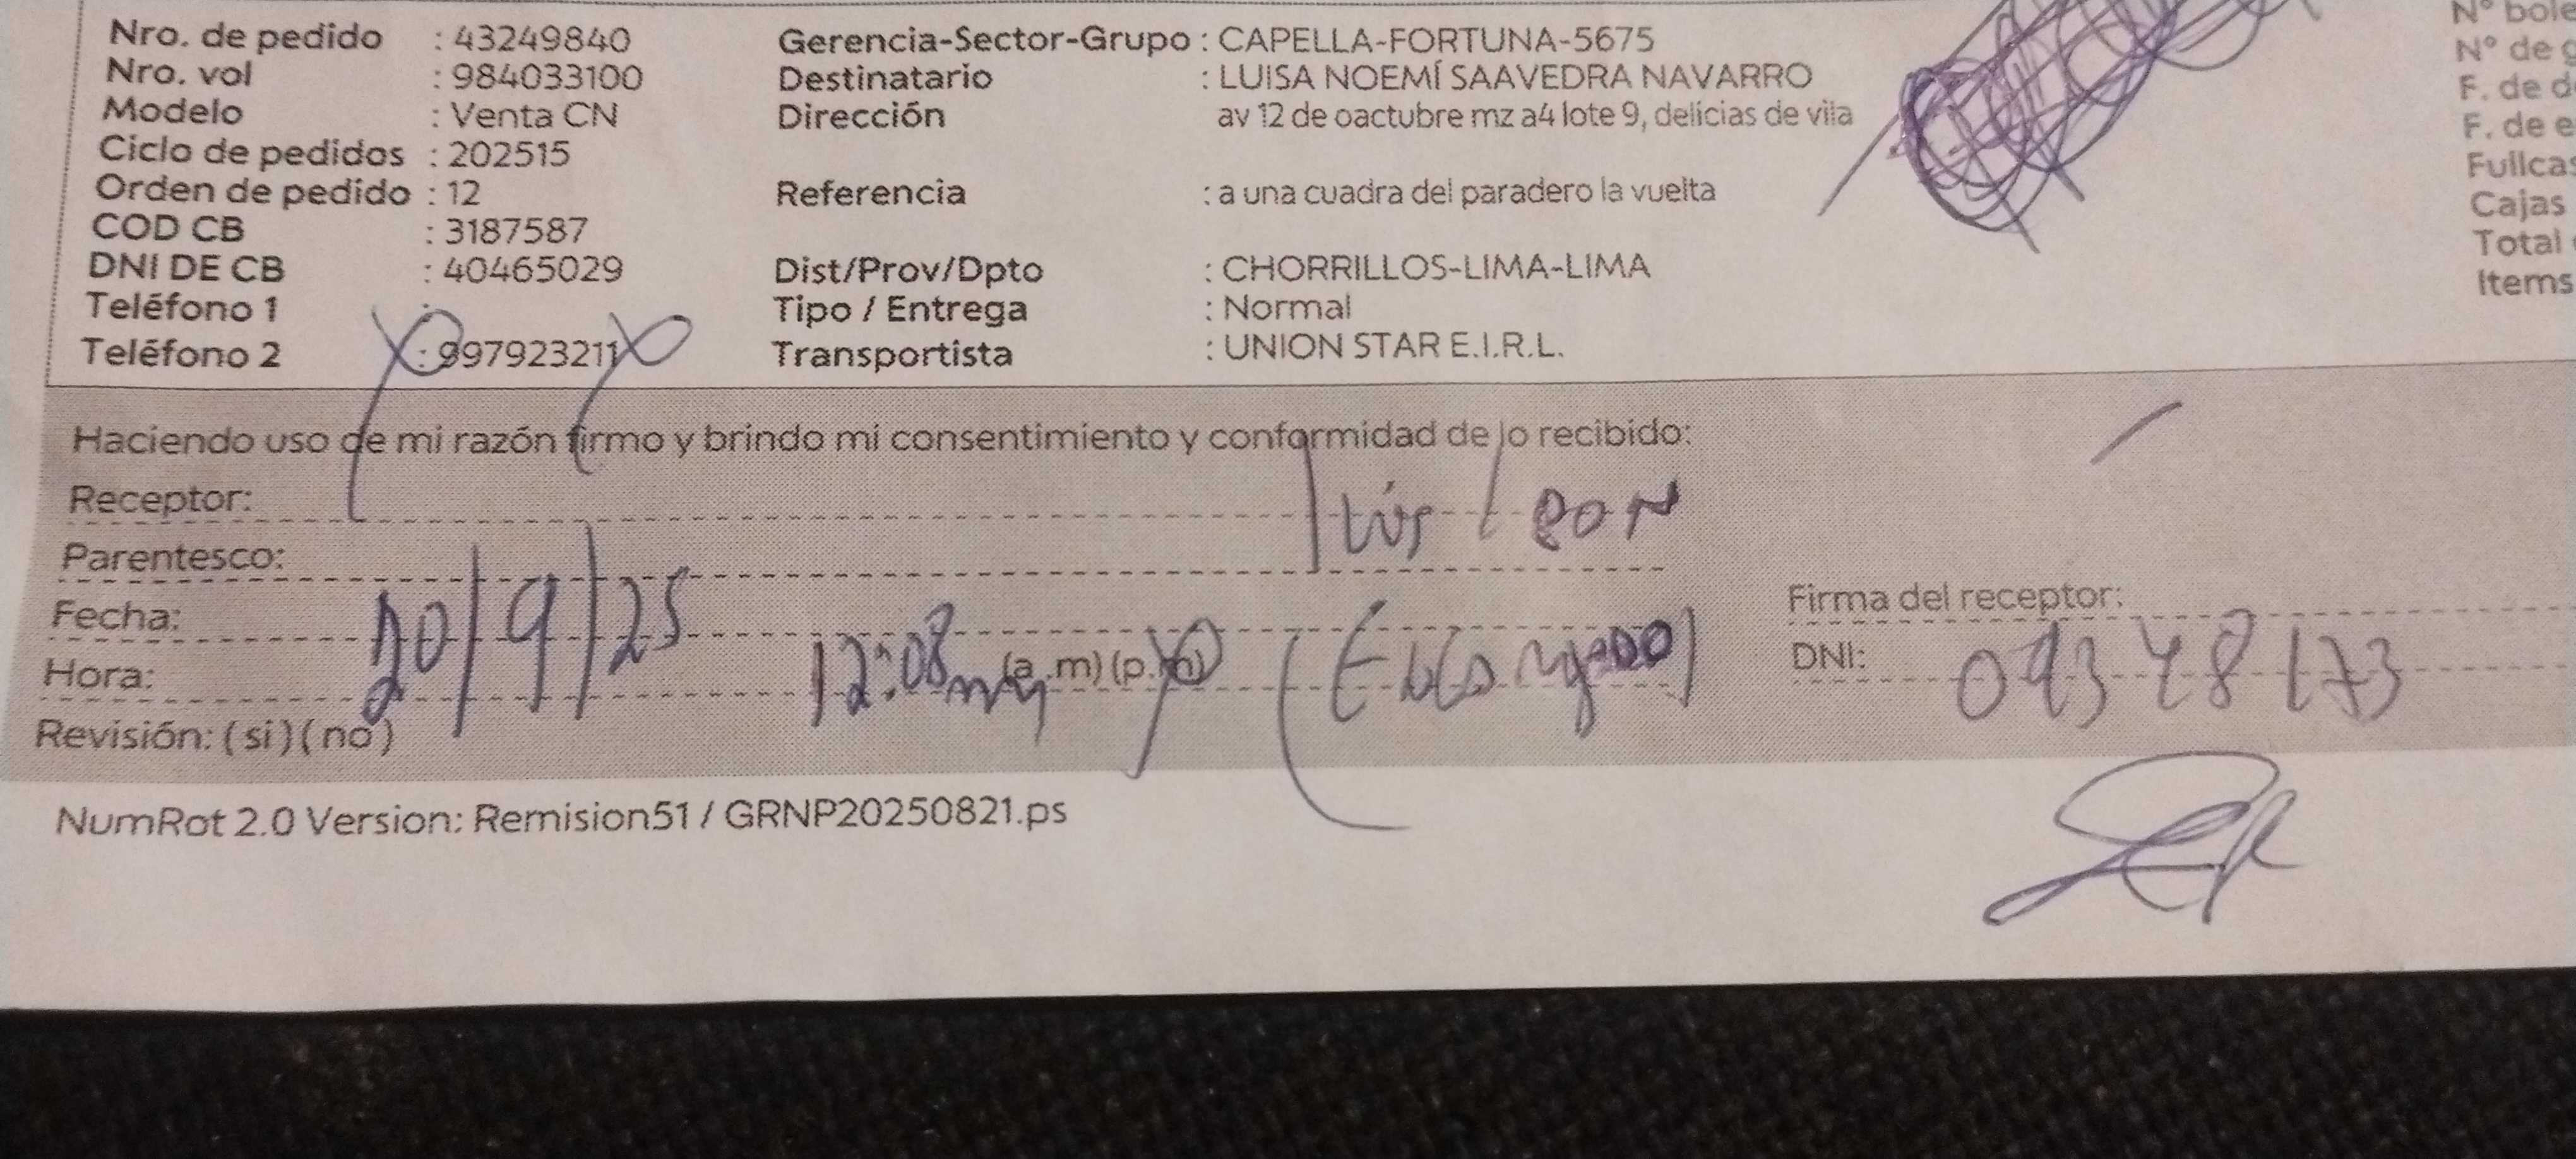 Nro. de pedido : 43249840
Nro. vol : 984033100
Modelo : Venta CN
Ciclo de pedidos : 202515
Orden de pedido : 12
COD CB : 3187587
DNI DE CB : 40465029
Teléfono 1 :
Teléfono 2 : 997923211
Gerencia-Sector-Grupo : CAPELLA-FORTUNA-5675
Destinatario : LUISA NOEMÍ SAAVEDRA NAVARRO
Dirección av 12 de oactubre mz a4 lote 9, delicias de vila
Referencia : a una cuadra del paradero la vuelta
Dist/Prov/Dpto : CHORRILLOS-LIMA-LIMA
Tipo / Entrega : Normal
Transportista : UNION STAR E.I.R.L.
N° bole
N° de g
F. de d
F. de e
Fullcas
Cajas
Total
Items
Haciendo uso de mi razón firmo y brindo mi consentimiento y conformidad de lo recibido:
Receptor: Luis Leon
Parentesco:
Fecha: 20/9/25
Hora: 12:08 (a.m) (p.m)
Revisión: ( si ) ( no )
Firma del receptor:
DNI: 09348173
NumRot 2.0 Version: Remision51 / GRNP20250821.ps